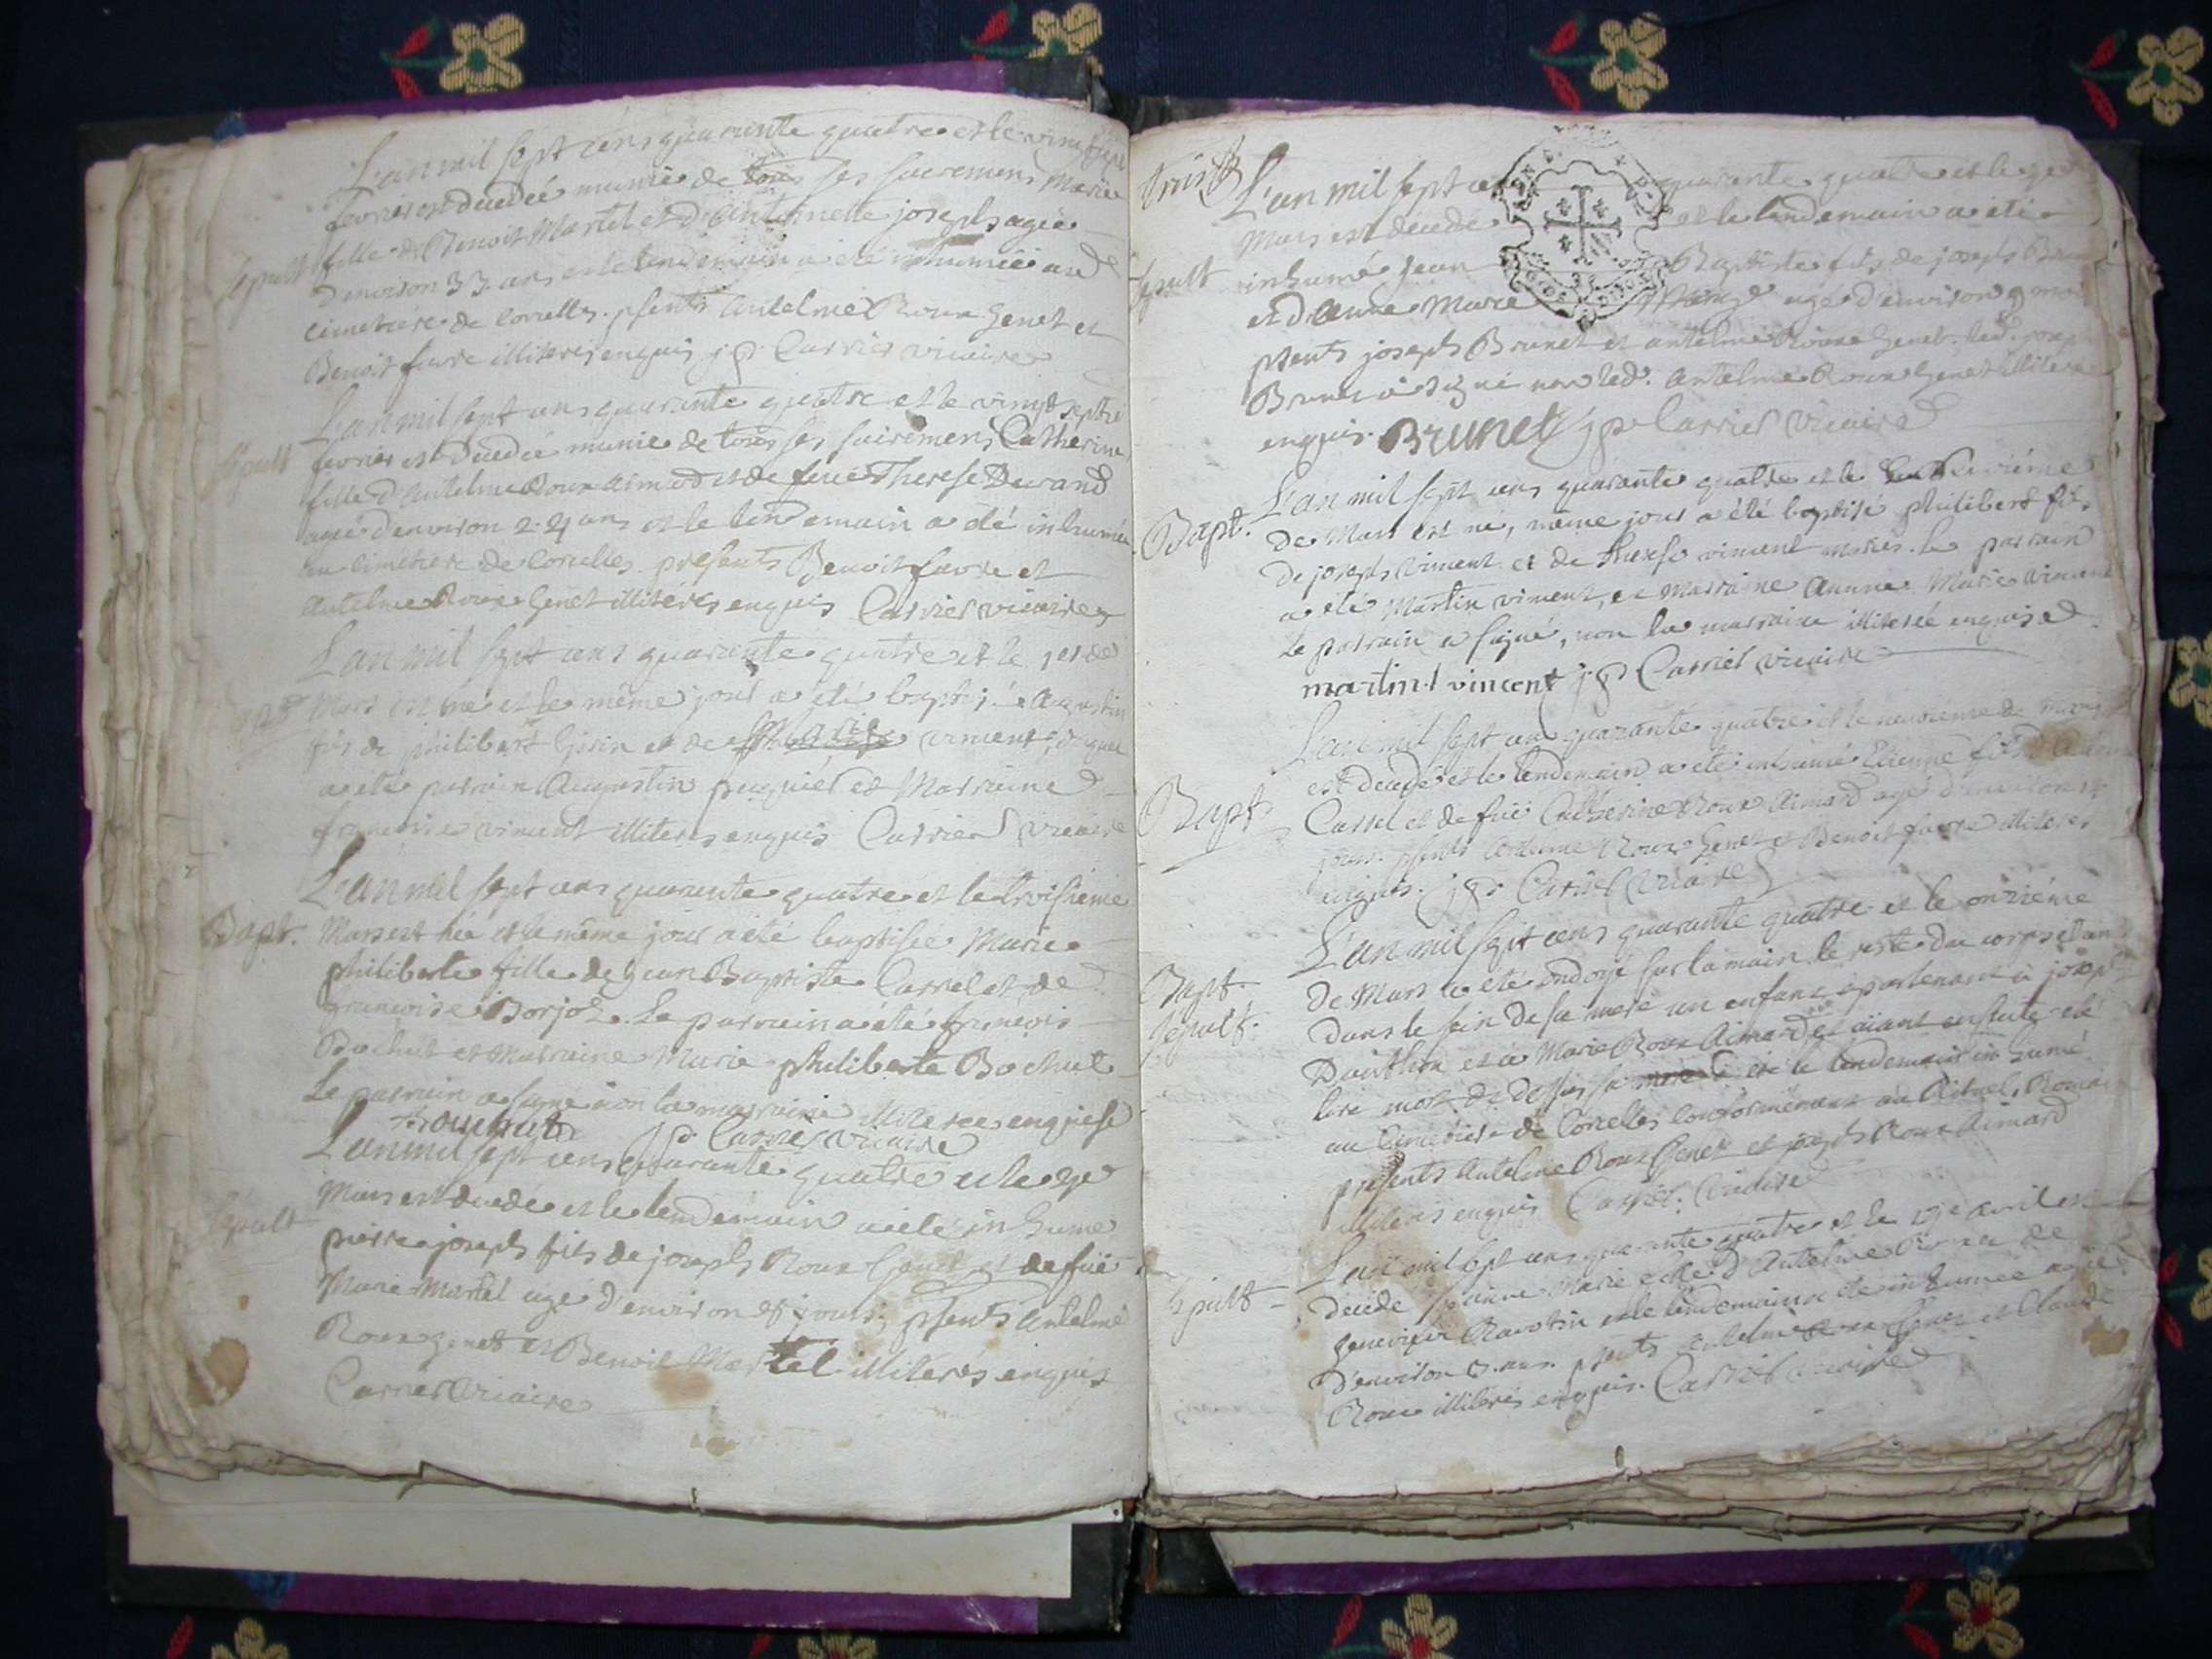 L'an mil sept cens quarante quatre et le vingt
fevrier est decedée munie de tous ses sacremens Marie
fille de Benoit Martel et d'Anthelmette joseph agée
Sepult d'environ 33 ans et le lendemain a été inhumée au
cimetiere de Corcelles. psents Antelme Roux Genet et
Benoit favre illiteres enquis Carrier vicaire
L'an mil sept cens quarante quatre et le vingt septe
Sepult fevrier est decedée munie de tous ses sacremens Catherine
fille d'Antelme Roux aimard et de feüe Therese Durand
agée d'environ 24 ans et le lendemain a été inhumée
au cimetiere de Corcelles presents Benoit favre et
Antelme Roux Genet illiteres enquis Carrier vicaire
L'an mil sept cens quarante quatre et le 1er de
Mars est né et le même jour a été baptisé Augustin
fils de philibert et de Marie vincent, duquel
a été parrain Augustin et Marraine
francoise vincent illiteres enquis Carrier vicaire
L'an mil sept cens quarante quatre et le troisieme
Bapt. Mars est née et le même jour a été baptisée Marie
philiberte fille de Jean Baptiste Carrel et de
francoise Borjol. Le parrain a été francois
Bochut et marraine Marie philiberte Bochut
Le parrain a signé non la marraine illiteree enquise
Carrier vicaire
L'an mil sept cens quarante quatre et le
Sepult Mars est decedé et le lendemain a été inhumé
pierre joseph fils de joseph Roux Genet et de feüe
Marie Martel agé d'environ jours, psents Antelme
Roux Genet et Benoit Martel illiterés enquis
Carrier vicaire
L'an mil sept cens quarante quatre et le
Mars est decedé et le lendemain a été
Sepult inhumé Jean Baptiste fils de joseph
et d'Anne Marie agé d'environ 9 mois
psents joseph Brunet et antelme Roux Genet. led. joseph
Brunet a signé non led. Antelme Roux Genet illiteré
enquis. Brunet Carrier Vicaire
L'an mil sept cens quarante quatre et le
Bapt. De Mars est né, même jour a été baptisé philibert fils
De joseph vincent et de Therese vincent mariés. le parrain
a été Martin vincent, et Marraine Anne Marie vincent
Le parrain a signé, non la marraine illiterée enquise
martin vincent Carrier vicaire
L'an mil sept cens quarante quatre et le neuvieme de mars
est decedé et le lendemain a été inhumé Etienne fils
Bapt Carrel et de feüe Catherine Roux Aimard agé d'environ
jours. psents Antelme Roux Genet et Benoit favre illiteres
enquis. Carrier vicaire
L'an mil sept cens quarante quatre et le onzième
Bapt. De Mars a été ondoyé sur la main le reste du corps etant
Sepult. Dans le sein de sa mere un enfant apartenant à joseph
et à Marie Roux Aimard et aiant ensuite été
tiré mort de dessus sa mere a été le lendemain inhumé
au cimetiere de Corcelles conformement au Rituel Romain
presents Antelme Roux Genet et joseph Roux Aimard
illiteres enquis Carrier Vicaire
L'an mil sept cens quarante quatre et le avril est
Sepult decedé Marie d'Antelme Roux de
et le lendemain a été inhumée agée
d'environ ans. psents Antelme Roux Genet et Claude
Roux illiterés enquis. Carrier vicaire